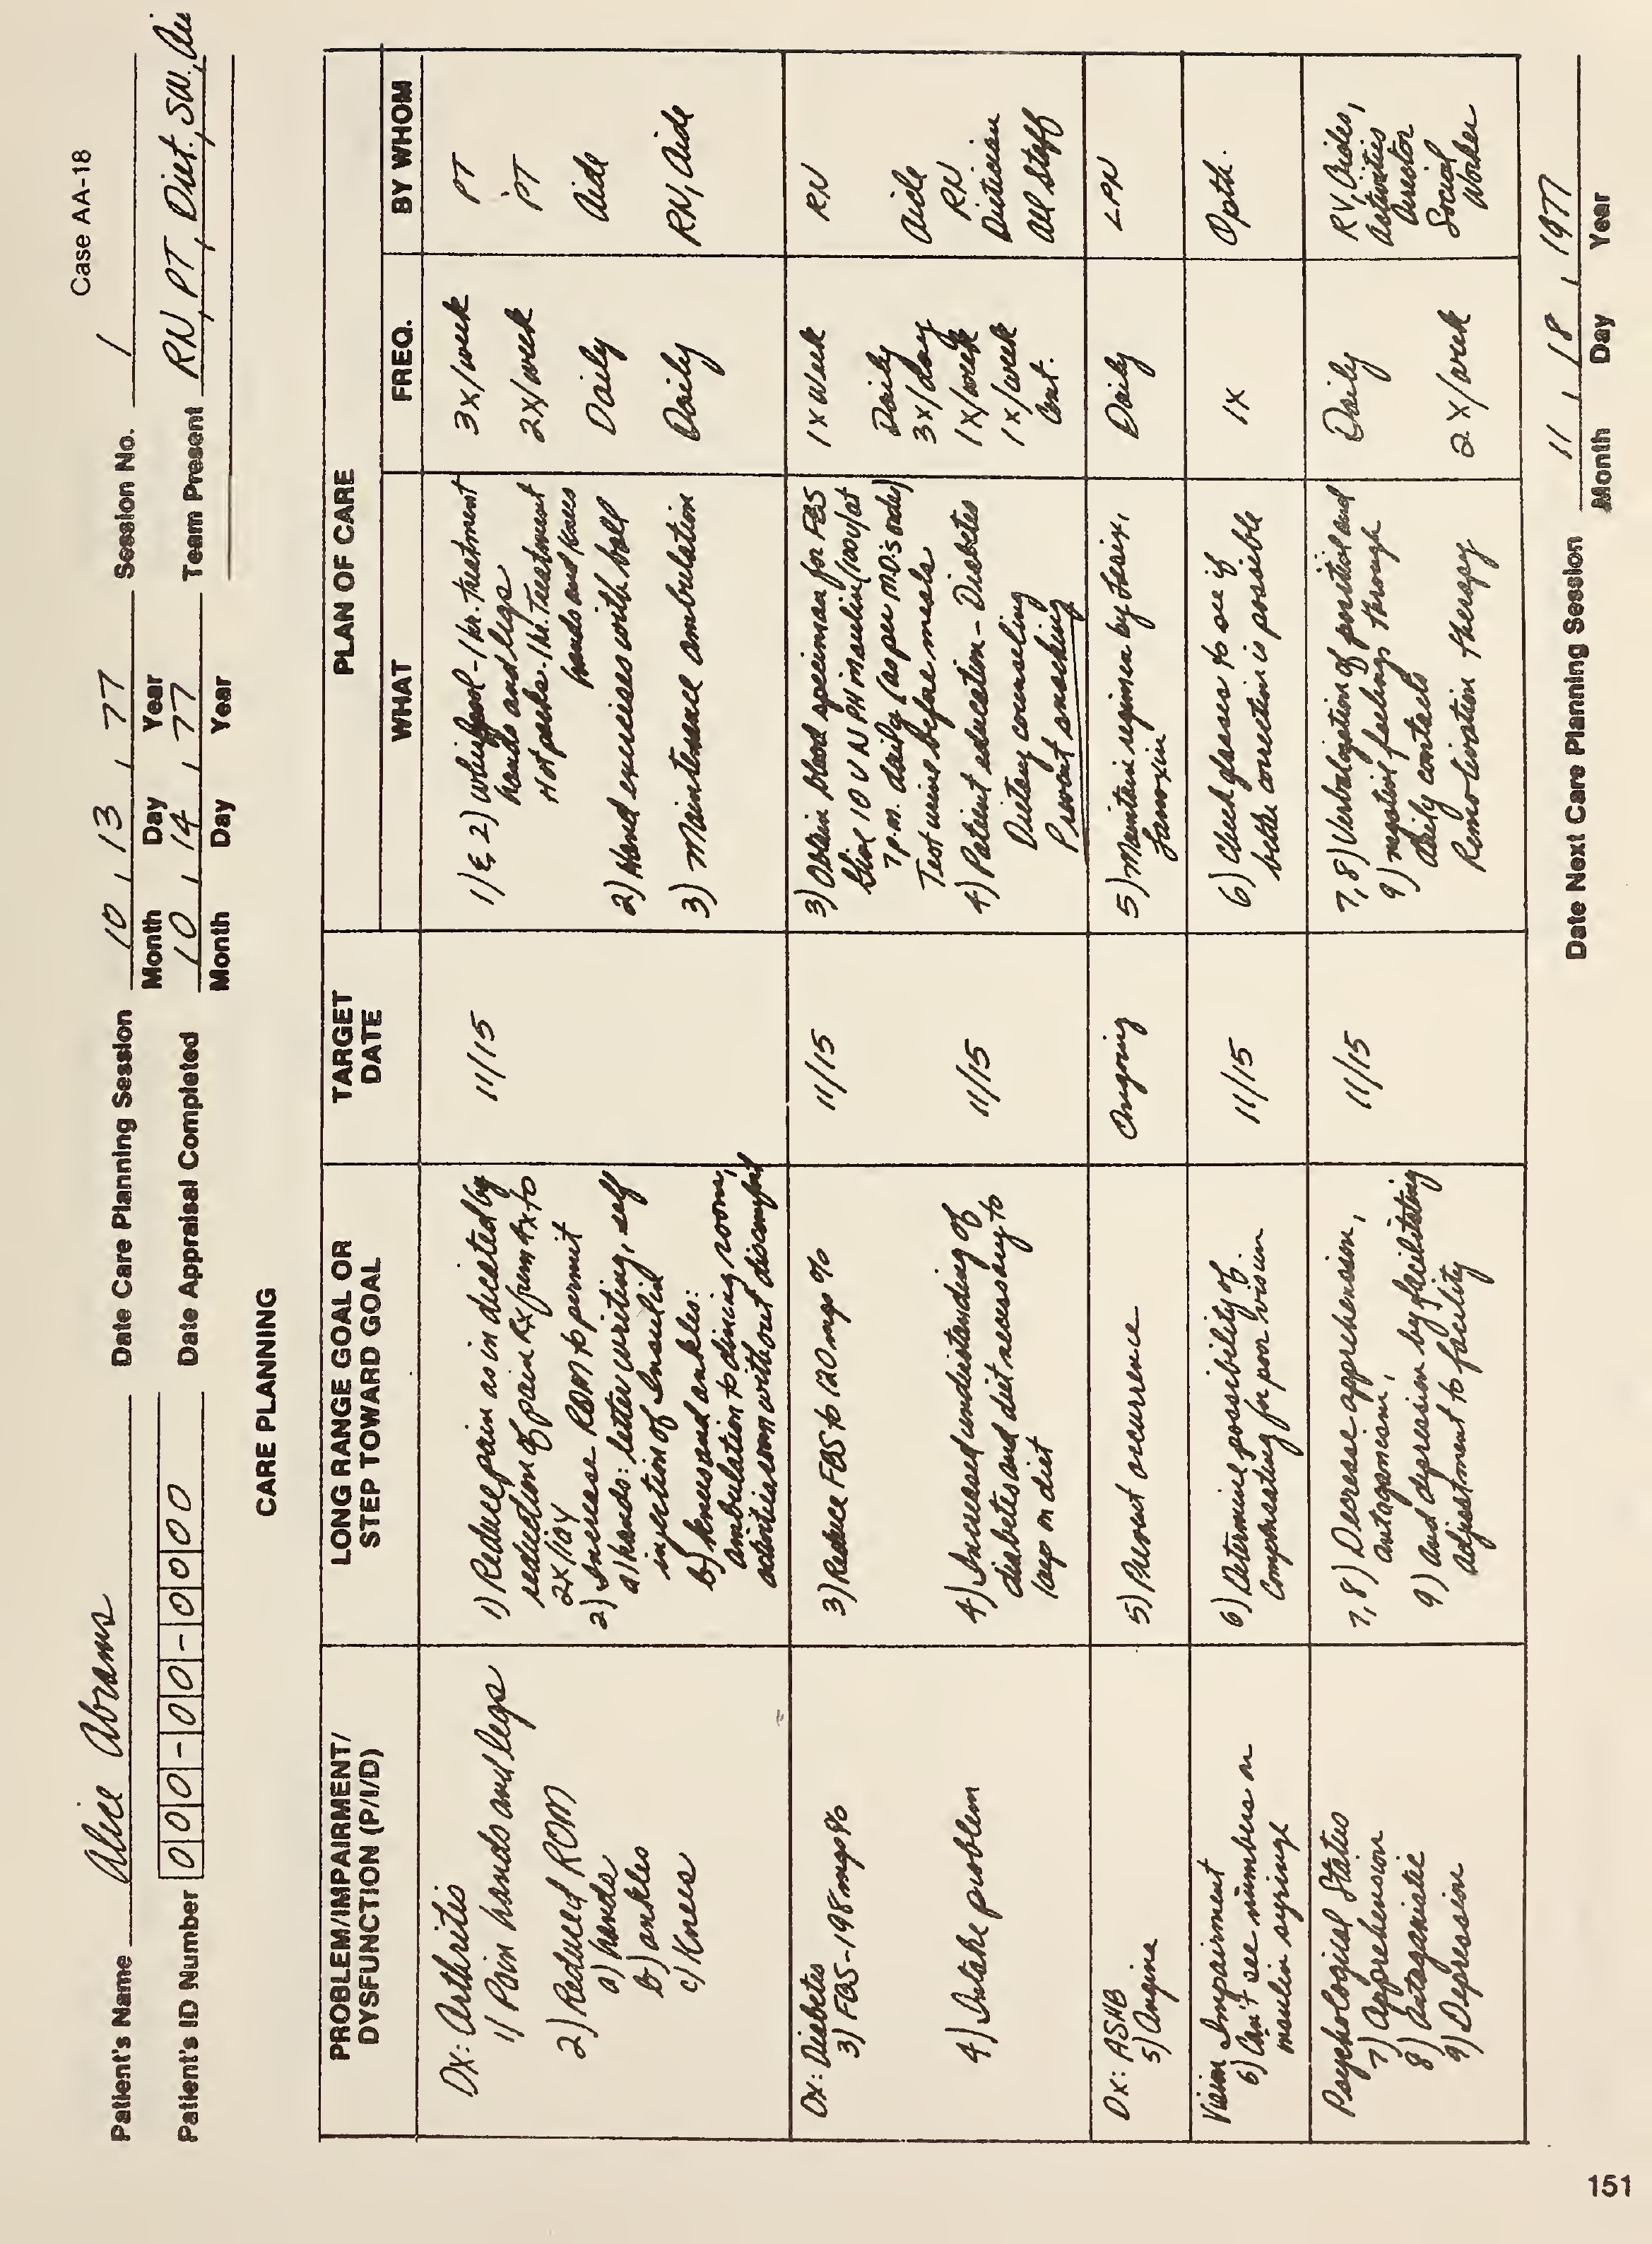 Case AA-18
Patient's Name Alice Abrams Date Care Planning Session 10 , 13 , 77 Session No. 1
Month Day Year
Patient's ID Number 000-00-0000 Date Appraisal Completed 10 , 14 , 77 Team Present RN, PT, Diet., SW.,
Month Day Year
CARE PLANNING
PROBLEM/IMPAIRMENT/
DYSFUNCTION (P/I/D)
LONG RANGE GOAL OR
STEP TOWARD GOAL
TARGET
DATE
PLAN OF CARE
WHAT
FREQ.
BY WHOM
Dx: Arthritis
1) Pain hands and legs
2) Reduced ROM
a) hands
b) ankles
c) Knees
1) Reduce pain as indicated by
reduction of pain Rx from 4x to
2x/day
2) Increase ROM to permit
a) hands: letter writing, self
injection of Insulin
b) knees and ankles:
ambulation to dining room,
activities room without discomfort
11/15
1) & 2) Whirlpool - 1 hr. treatment
hands and legs
Hot packs - 1 hr. Treatment
hands and knees
2) Hand exercises with ball
3) Maintenance ambulation
3x/week
2x/week
Daily
Daily
PT
PT
Aide
RN, Aide
Dx: Diabetes
3) FBS - 198 mgs%
4) Intake problem
3) Reduce FBS to 120 mgs %
4) Increased understanding of
diabetes and diet necessary to
keep on diet
11/15
11/15
3) Obtain blood specimen for FBS
Give 10 U NPH insulin (100 U/at
7 p.m. daily (as per M.D.'s order)
Test urine before meals
4) Patient education - Diabetes
Dietary counseling
Prevent snacking
1x Week
Daily
3x/day
1x/week
1x/week
Cont.
RN
Aide
RN
Dietician
All Staff
Dx: ASHB
5) Angina
5) Prevent occurrence
Ongoing
5) Maintain regimen by Lasix,
Lanoxin
Daily
LPN
Vision Impairment
6) Can't see numbers on
insulin syringe
6) Determine possibility of
compensating for poor vision
11/15
6) Check glasses to see if
better correction is possible
1x
Opth.
Psychological Status
7) Apprehension
8) Antagonistic
9) Depression
7, 8) Decrease apprehension,
antagonism,
9) and depression by facilitating
adjustment to facility
11/15
7, 8) Verbalization of positive and
9) negative feelings through
daily contacts
Remotivation therapy
Daily
2x/week
RN, Aides,
Activities
Director
Social
Worker
Date Next Care Planning Session 11 , 18 , 1977
Month Day Year
151